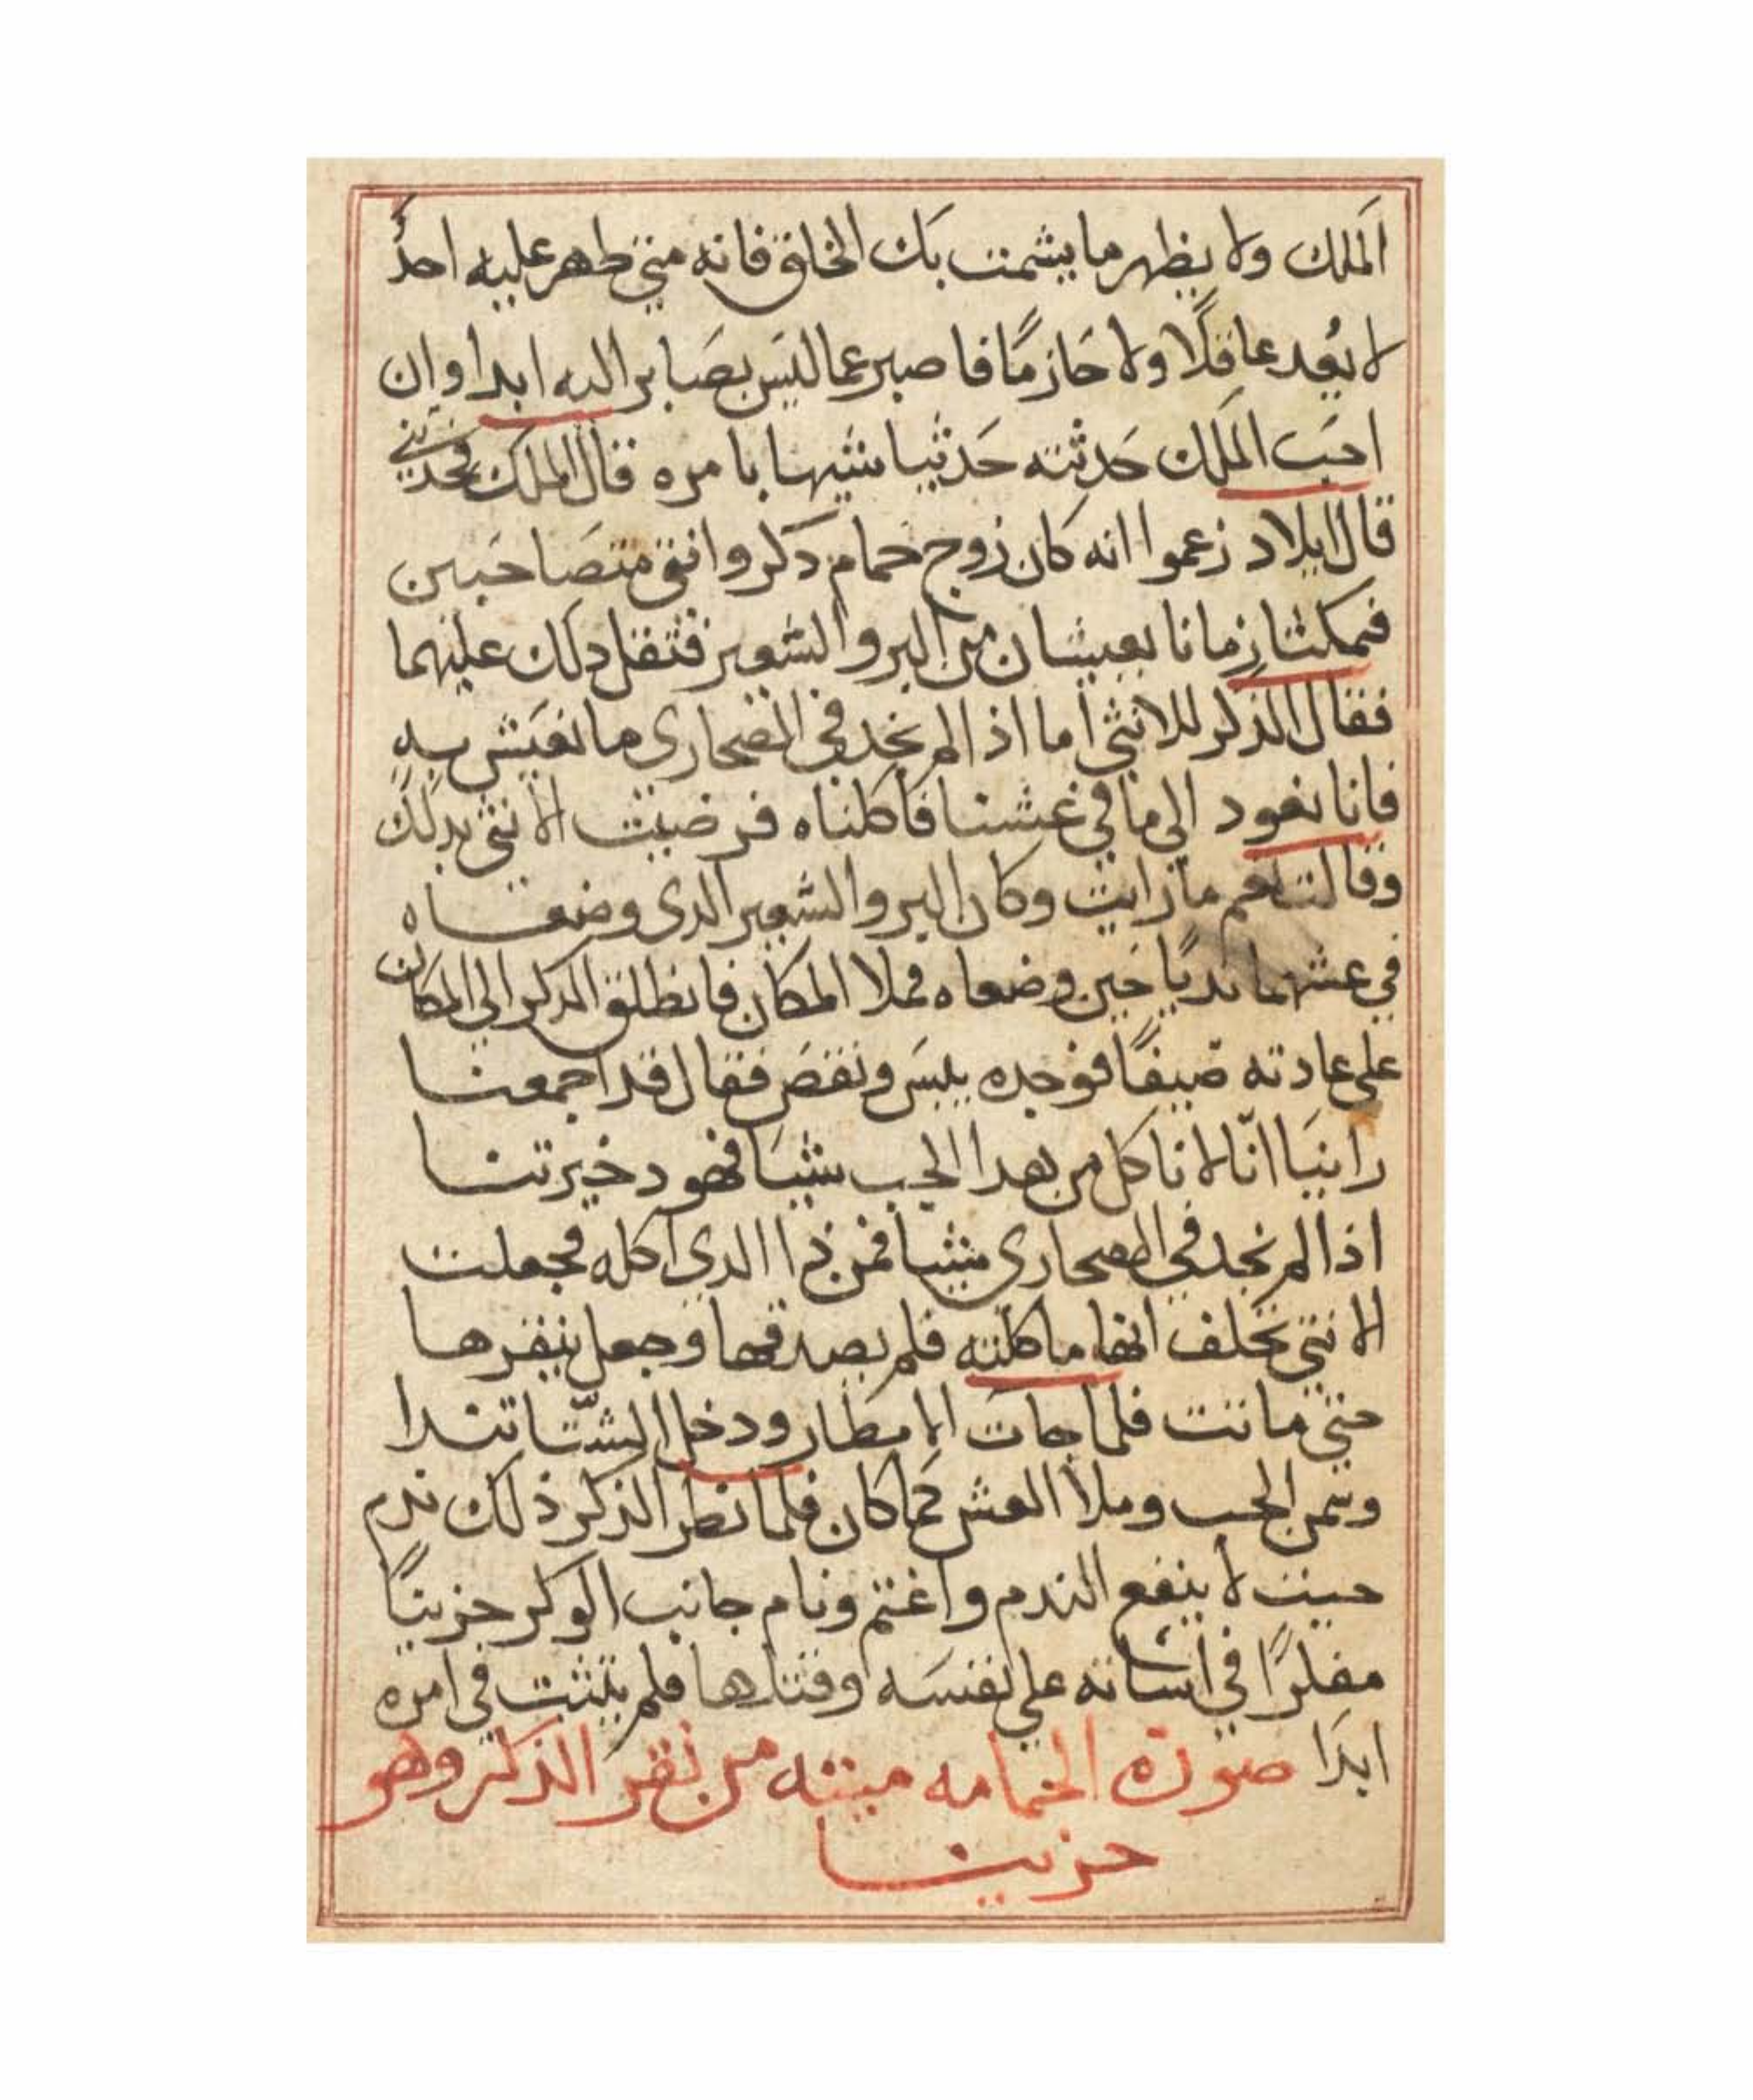 الملك ولا يظهر ما يشمت بك الخلق فانه متي طهر عليه احدٌ
لا يُعد عاقلًا ولا حَازمًا فاصبر عما ليَس بصَابر اليه ابدا وان
احبَ الملَك حَدثته حَدثيا شيها بامره قال الملك فحدثني
قال ايلاد زعموا انه كان زوج حمام دكر وانتي متصَاحبين
فمكثا زمانا يعيشان من البر والشعير فتقل دلك عليهما
فقال الذكر للانثي اما اذا لم نجد في الصحاري ما نعَيش به
فانا نعود الي ما في عشنا فاكلناه فرضيت الانثي بدلك
وقالت نعم ما رايت وكان البر والشعير الدي وضعاه
في عشهما نديًا حَين وضعاه فملا المكان فانطلق الدكر الي المكان
علي عادته صَيفًا فوجده يبسَ ونقصَ فقال قد اجمعنا
راينَا انّا لا ناكل من هدا الحب شيَا فهو دخيرتنا
اذا لم نجد في الصحاري شيا فمن ذا الدي اكله فجعلت
الانثي تحَلف انها ما كلته فلم يصدقها وجعل ينقرها
حتي ماتت فلما جاتَ الامطار ودخل الشّتا تندا
الحب وملا العش كما كان فلما نطر الذكر ذلك ندم
حيت لا ينفع الندم واغتم ونام جانب الوكر حزينًا
مفكرًا في اساته علي نفسَه وقتلها فلم يتثبت في امره
ابدَا صورة الحمامه ميتته من نقر الذكر وهو
حزينا